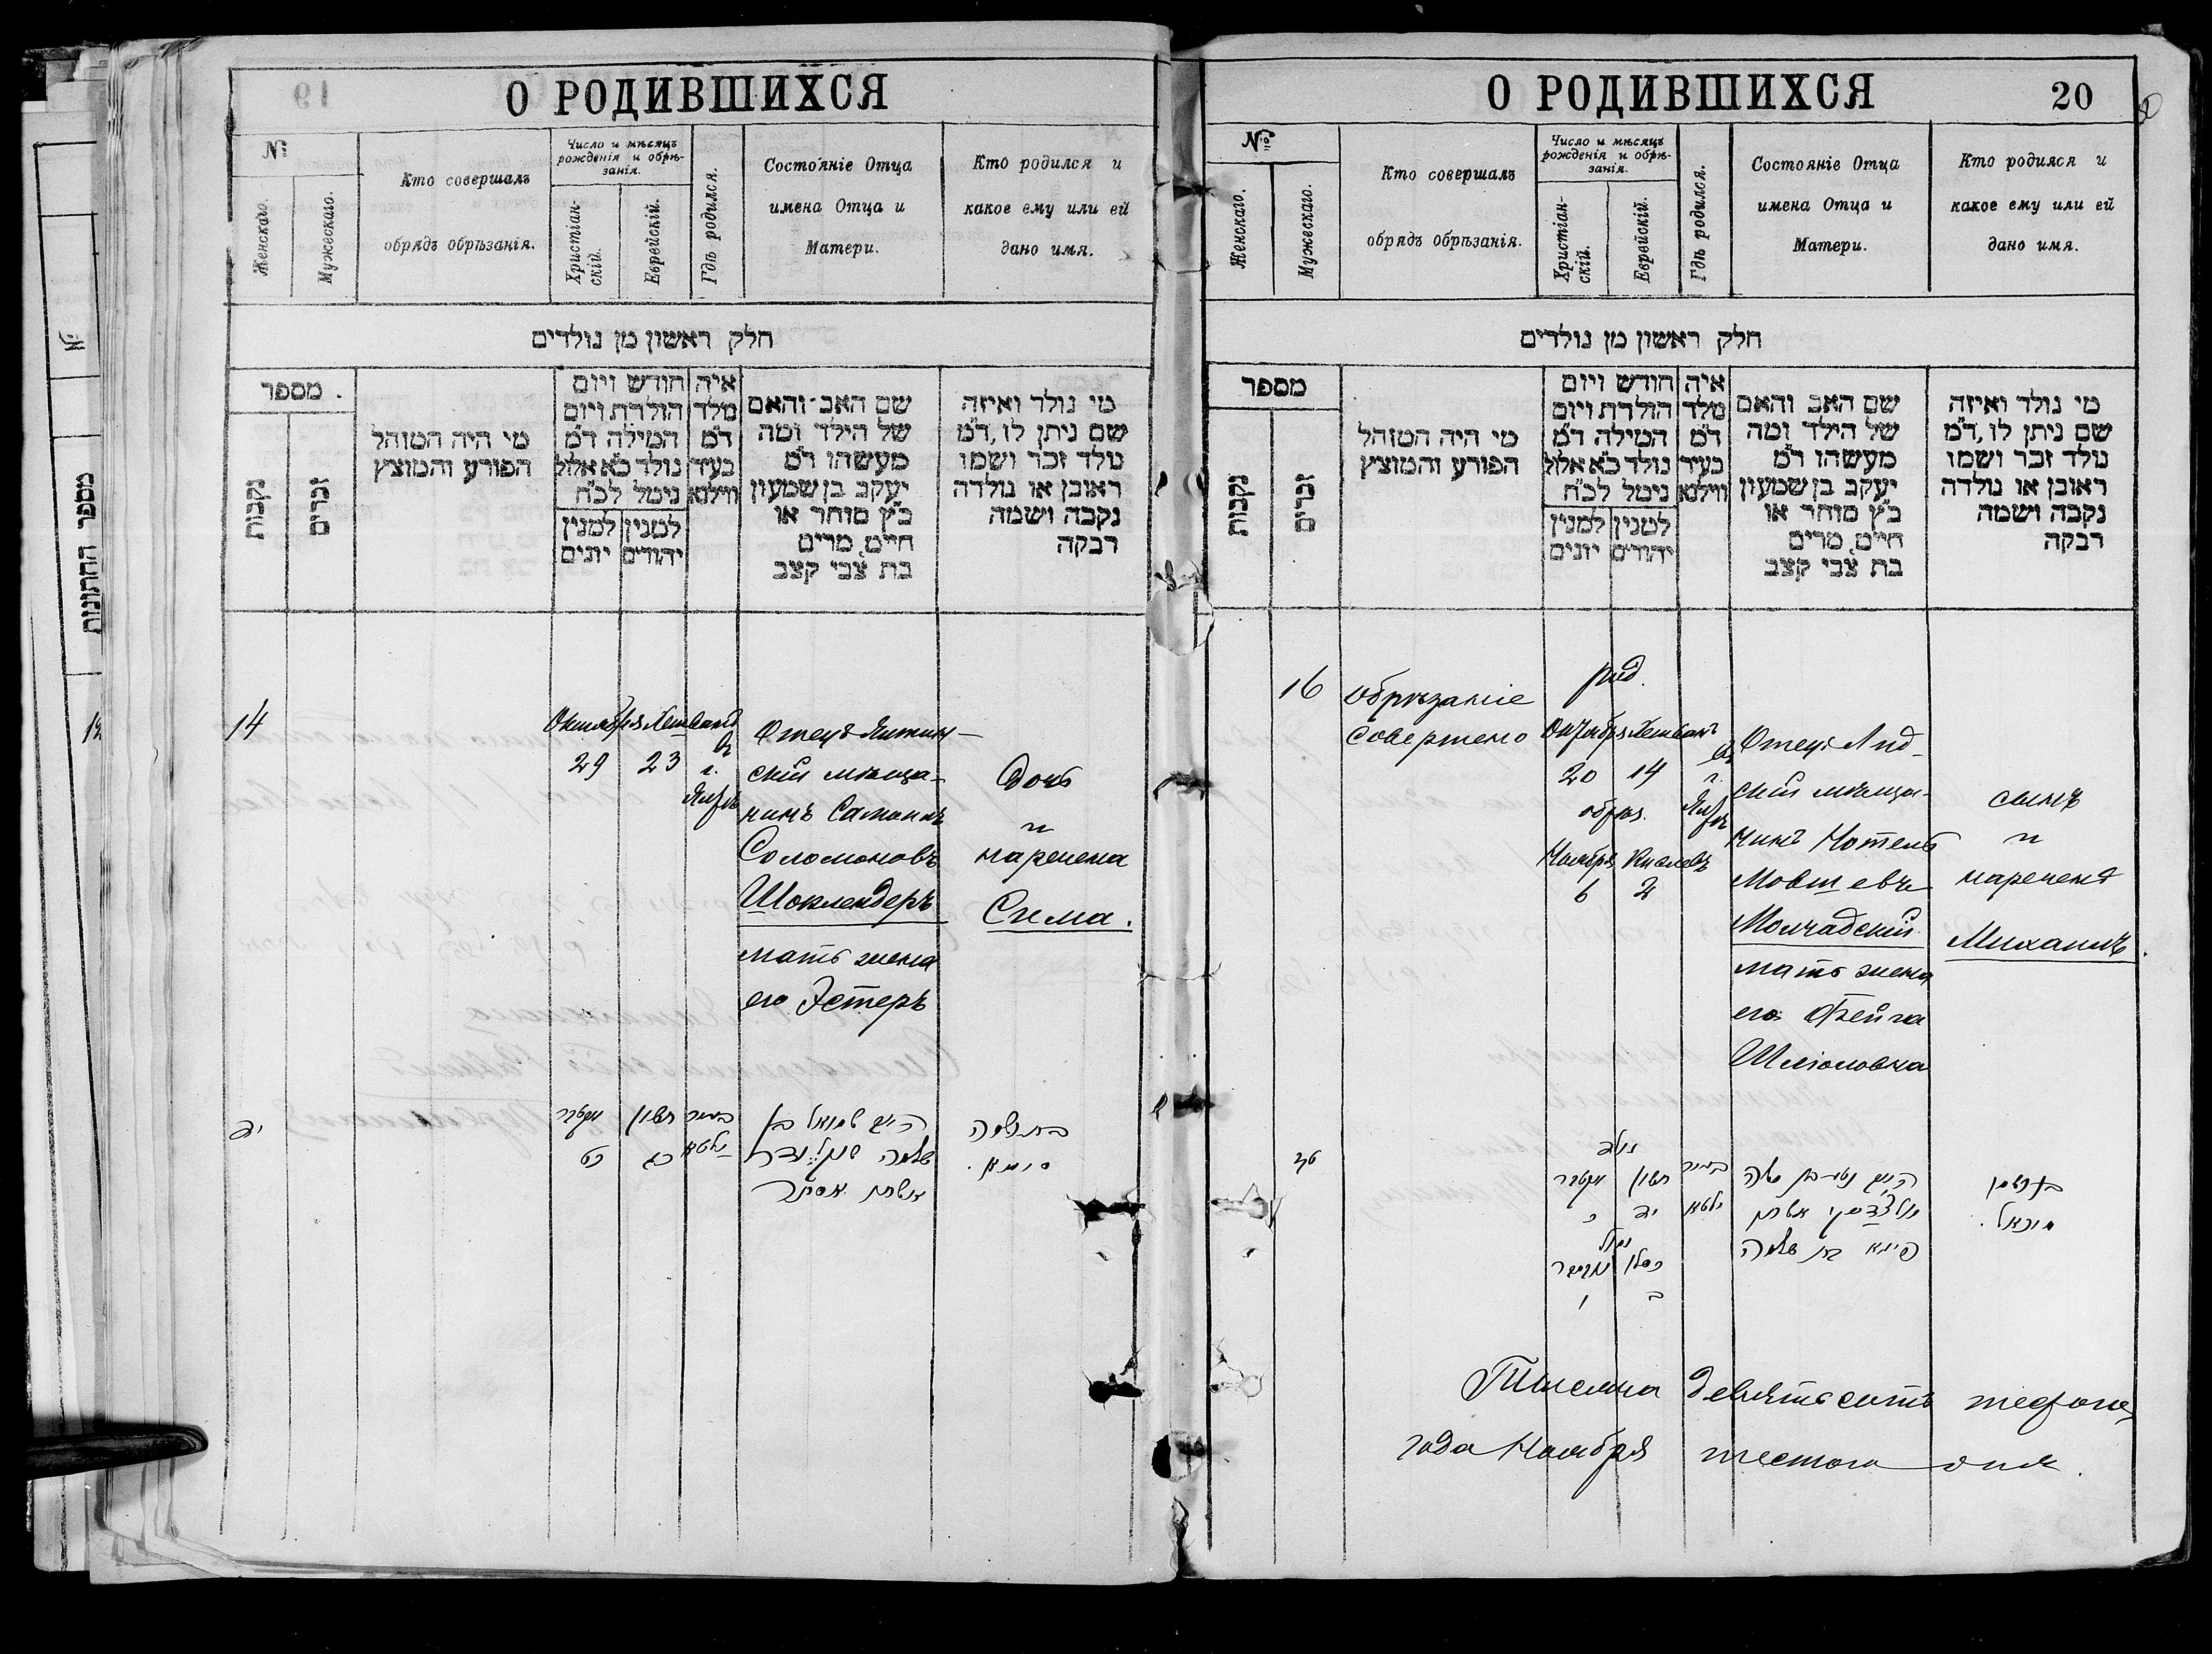 О РОДИВШИХСЯ
№
Женскаго.
Мужескаго.
Кто совершалъ
обрядъ обрѣзанія.
Число и мѣсяцъ
рожденія и обрѣ-
занія.
Христіан-
скій.
Еврейскій.
Гдѣ родился.
Состояніе Отца
имена Отца и
Матери.
Кто родился и
какое ему или ей
дано имя.
חלק ראשון מן נולדים
מספר
נקבות
זכרים
מי היה המוהל
הפורע והמוצץ
חודש ויום
הולדת ויום
המילה ד״מ
נולד כ״א אלול
נימל לכ״ח
למנין
יהודים
למנין
יונים
איה
מלד
ד״מ
בעיר
ווילנא
שם האב והאם
של הילד ומה
מעשהו ד״מ
יעקב בן שמעון
כ״ץ סוחר או
חיים, מרים
בת צבי קצב
מי נולד ואיזה
שם ניתן לו, ד״מ
נולד זכר ושמו
ראובן או נולדה
נקבה ושמה
רבקה
14
Октября Хешванъ
29 23
въ
г.
Отецъ
скій мѣща-
нинъ
Соломоновъ
Шоклендеръ
мать жена
его Эстеръ
Дочь
и
наречена
Сима.
יד
חשון
כג
כט
שלמה
אסתר
סימא.
О РОДИВШИХСЯ
20
№
Женскаго.
Мужескаго.
Кто совершалъ
обрядъ обрѣзанія.
Число и мѣсяцъ
рожденія и обрѣ-
занія.
Христіан-
скій.
Еврейскій.
Гдѣ родился.
Состояніе Отца
имена Отца и
Матери.
Кто родился и
какое ему или ей
дано имя.
חלק ראשון מן נולדים
מספר
נקבות
זכרים
מי היה המוהל
הפורע והמוצץ
חודש ויום
הולדת ויום
המילה ד״מ
נולד כ״א אלול
נימל לכ״ח
למנין
יהודים
למנין
יונים
איה
מלד
ד״מ
בעיר
ווילנא
שם האב והאם
של הילד ומה
מעשהו ד״מ
יעקב בן שמעון
כ״ץ סוחר או
חיים, מרים
בת צבי קצב
מי נולד ואיזה
שם ניתן לו, ד״מ
נולד זכר ושמו
ראובן או נולדה
נקבה ושמה
רבקה
16
обрѣзаніе
совершено
род.
Октября Хешванъ
20 14
обрѣз.
Ноября Кислевъ
6 2
въ
г.
Отецъ Лид-
скій мѣща-
нинъ Нотель
Мовшевъ
Молчадскій
мать жена
его Фейга
Шліомовна
сынъ
и
нареченъ
Михаилъ.
טז
נולד
חשון
יד
כ
נימול
כסלו
ב
ו
פייגא בת שלמה
מיכאל.
Тысяча девятьсотъ
года Ноября шестого дня.